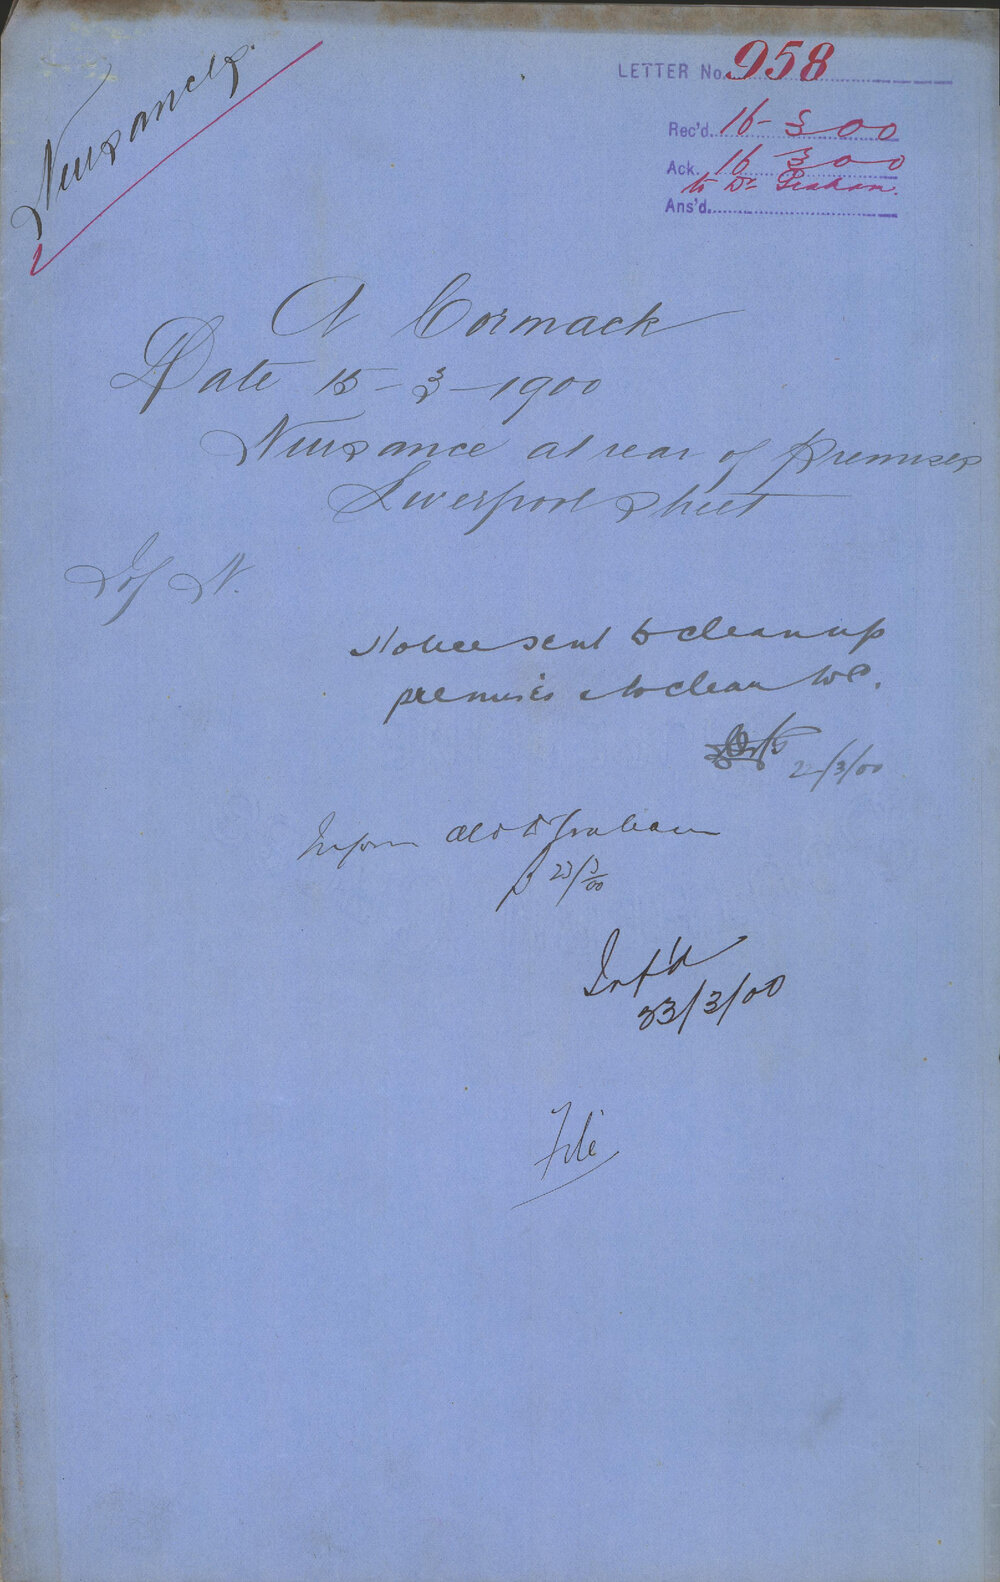 Nuisances.
LETTER No. 958
Rec'd. 16-3 00
Ack. 16 3 00
to Dr Graham.
Ans'd.
A Cormack
Date 15-3-1900
Nuisance at rear of premises
Liverpool Street
I of N.
Notice sent to clean up
premises & to clean WC.
22/3/00
Inform Ald Dr Graham
23/3/00
Inf'd
23/3/00
File